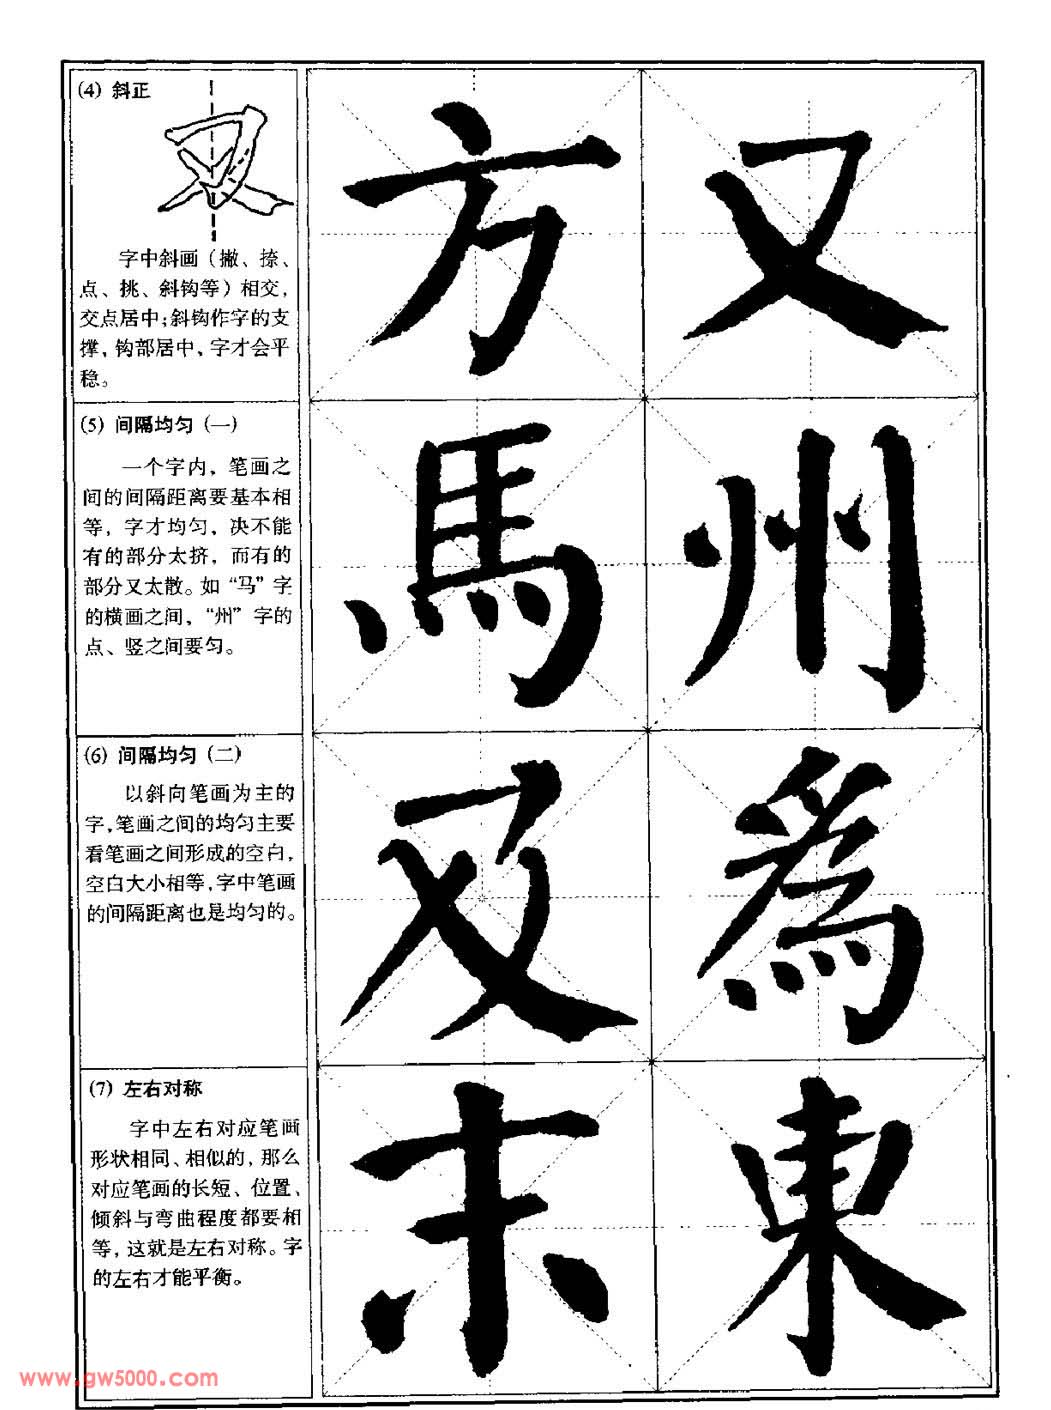 (4) 斜正
又
字中斜画（撇、捺、
点、挑、斜钩等）相交，
交点居中；斜钩作字的支
撑，钩部居中，字才会平
稳。
方 又
(5) 间隔均匀（一）
一个字内，笔画之
间的间隔距离要基本相
等，字才均匀，决不能
有的部分太挤，而有的
部分又太散。如“马”字
的横画之间，“州”字的
点、竖之间要匀。
馬 州
(6) 间隔均匀（二）
以斜向笔画为主的
字，笔画之间的均匀主要
看笔画之间形成的空白，
空白大小相等，字中笔画
的间隔距离也是均匀的。
及 為
(7) 左右对称
字中左右对应笔画
形状相同、相似的，那么
对应笔画的长短、位置、
倾斜与弯曲程度都要相
等，这就是左右对称。字
的左右才能平衡。
末 東
www.gw5000.com